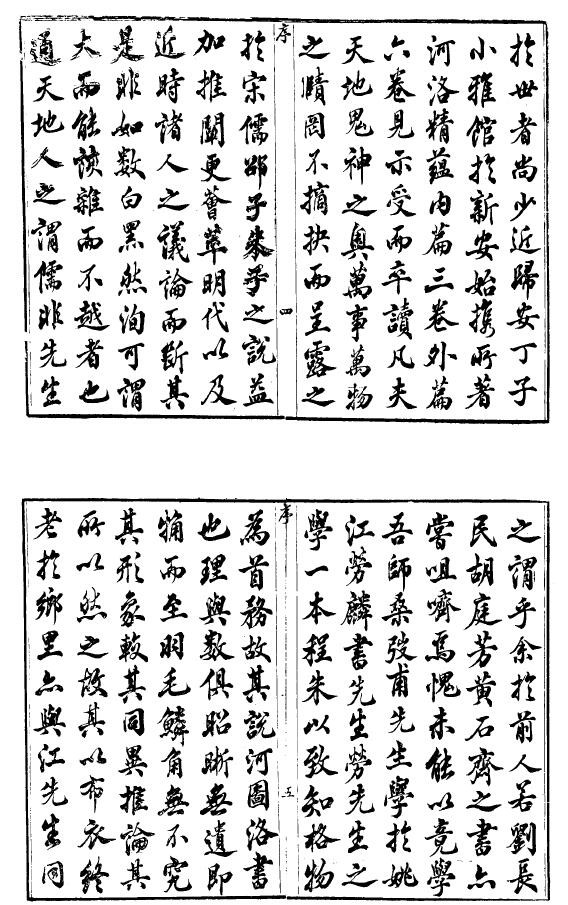 於世者尚少近歸安丁子
小雅館於新安始攜所著
河洛精蘊內篇三卷外篇
六卷見示受而卒讀凡夫
天地鬼神之奧萬事萬物
之賾罔不摘抉而呈露之
序
四
於宋儒邵子朱子之說益
加推闡更薈萃明代以及
近時諸人之議論而斷其
是非如數白黑然洵可謂
大而能該雜而不越者也
通天地人之謂儒非先生
之謂乎余於前人若劉長
民胡庭芳黃石齋之書亦
嘗咀嚌焉愧未能以竟學
吾師桑弢甫先生學於姚
江勞麟書先生勞先生之
學一本程朱以致知格物
序
五
為首務故其說河圖洛書
也理與數俱昭晰無遺即
物而至羽毛鱗角無不究
其形象較其同異推論其
所以然之故其以布衣終
老於鄉里亦與江先生同